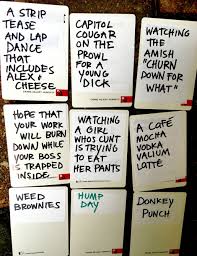 A STRIP
TEASE AND
LAP DANCE
THAT
INCLUDES
ALEX &
CHEESE
CAPITOL
COUGAR
ON THE
PROWL FOR
A YOUNG
'DICK'
WATCHING
THE
AMISH
"CHURN
DOWN FOR
WHAT"
HOPE THAT
YOUR WORK
WILL BURN
DOWN WHILE
YOUR BOSS
IS TRAPPED
INSIDE...
WATCHING
A GIRL
WHO'S CUNT
IS TRYING
TO EAT
HER PANTS
A CAFÉ
MOCHA
VODKA
VALIUM
LATTÉ
WEED
BROWNIES
HUMP
DAY
DONKEY
PUNCH